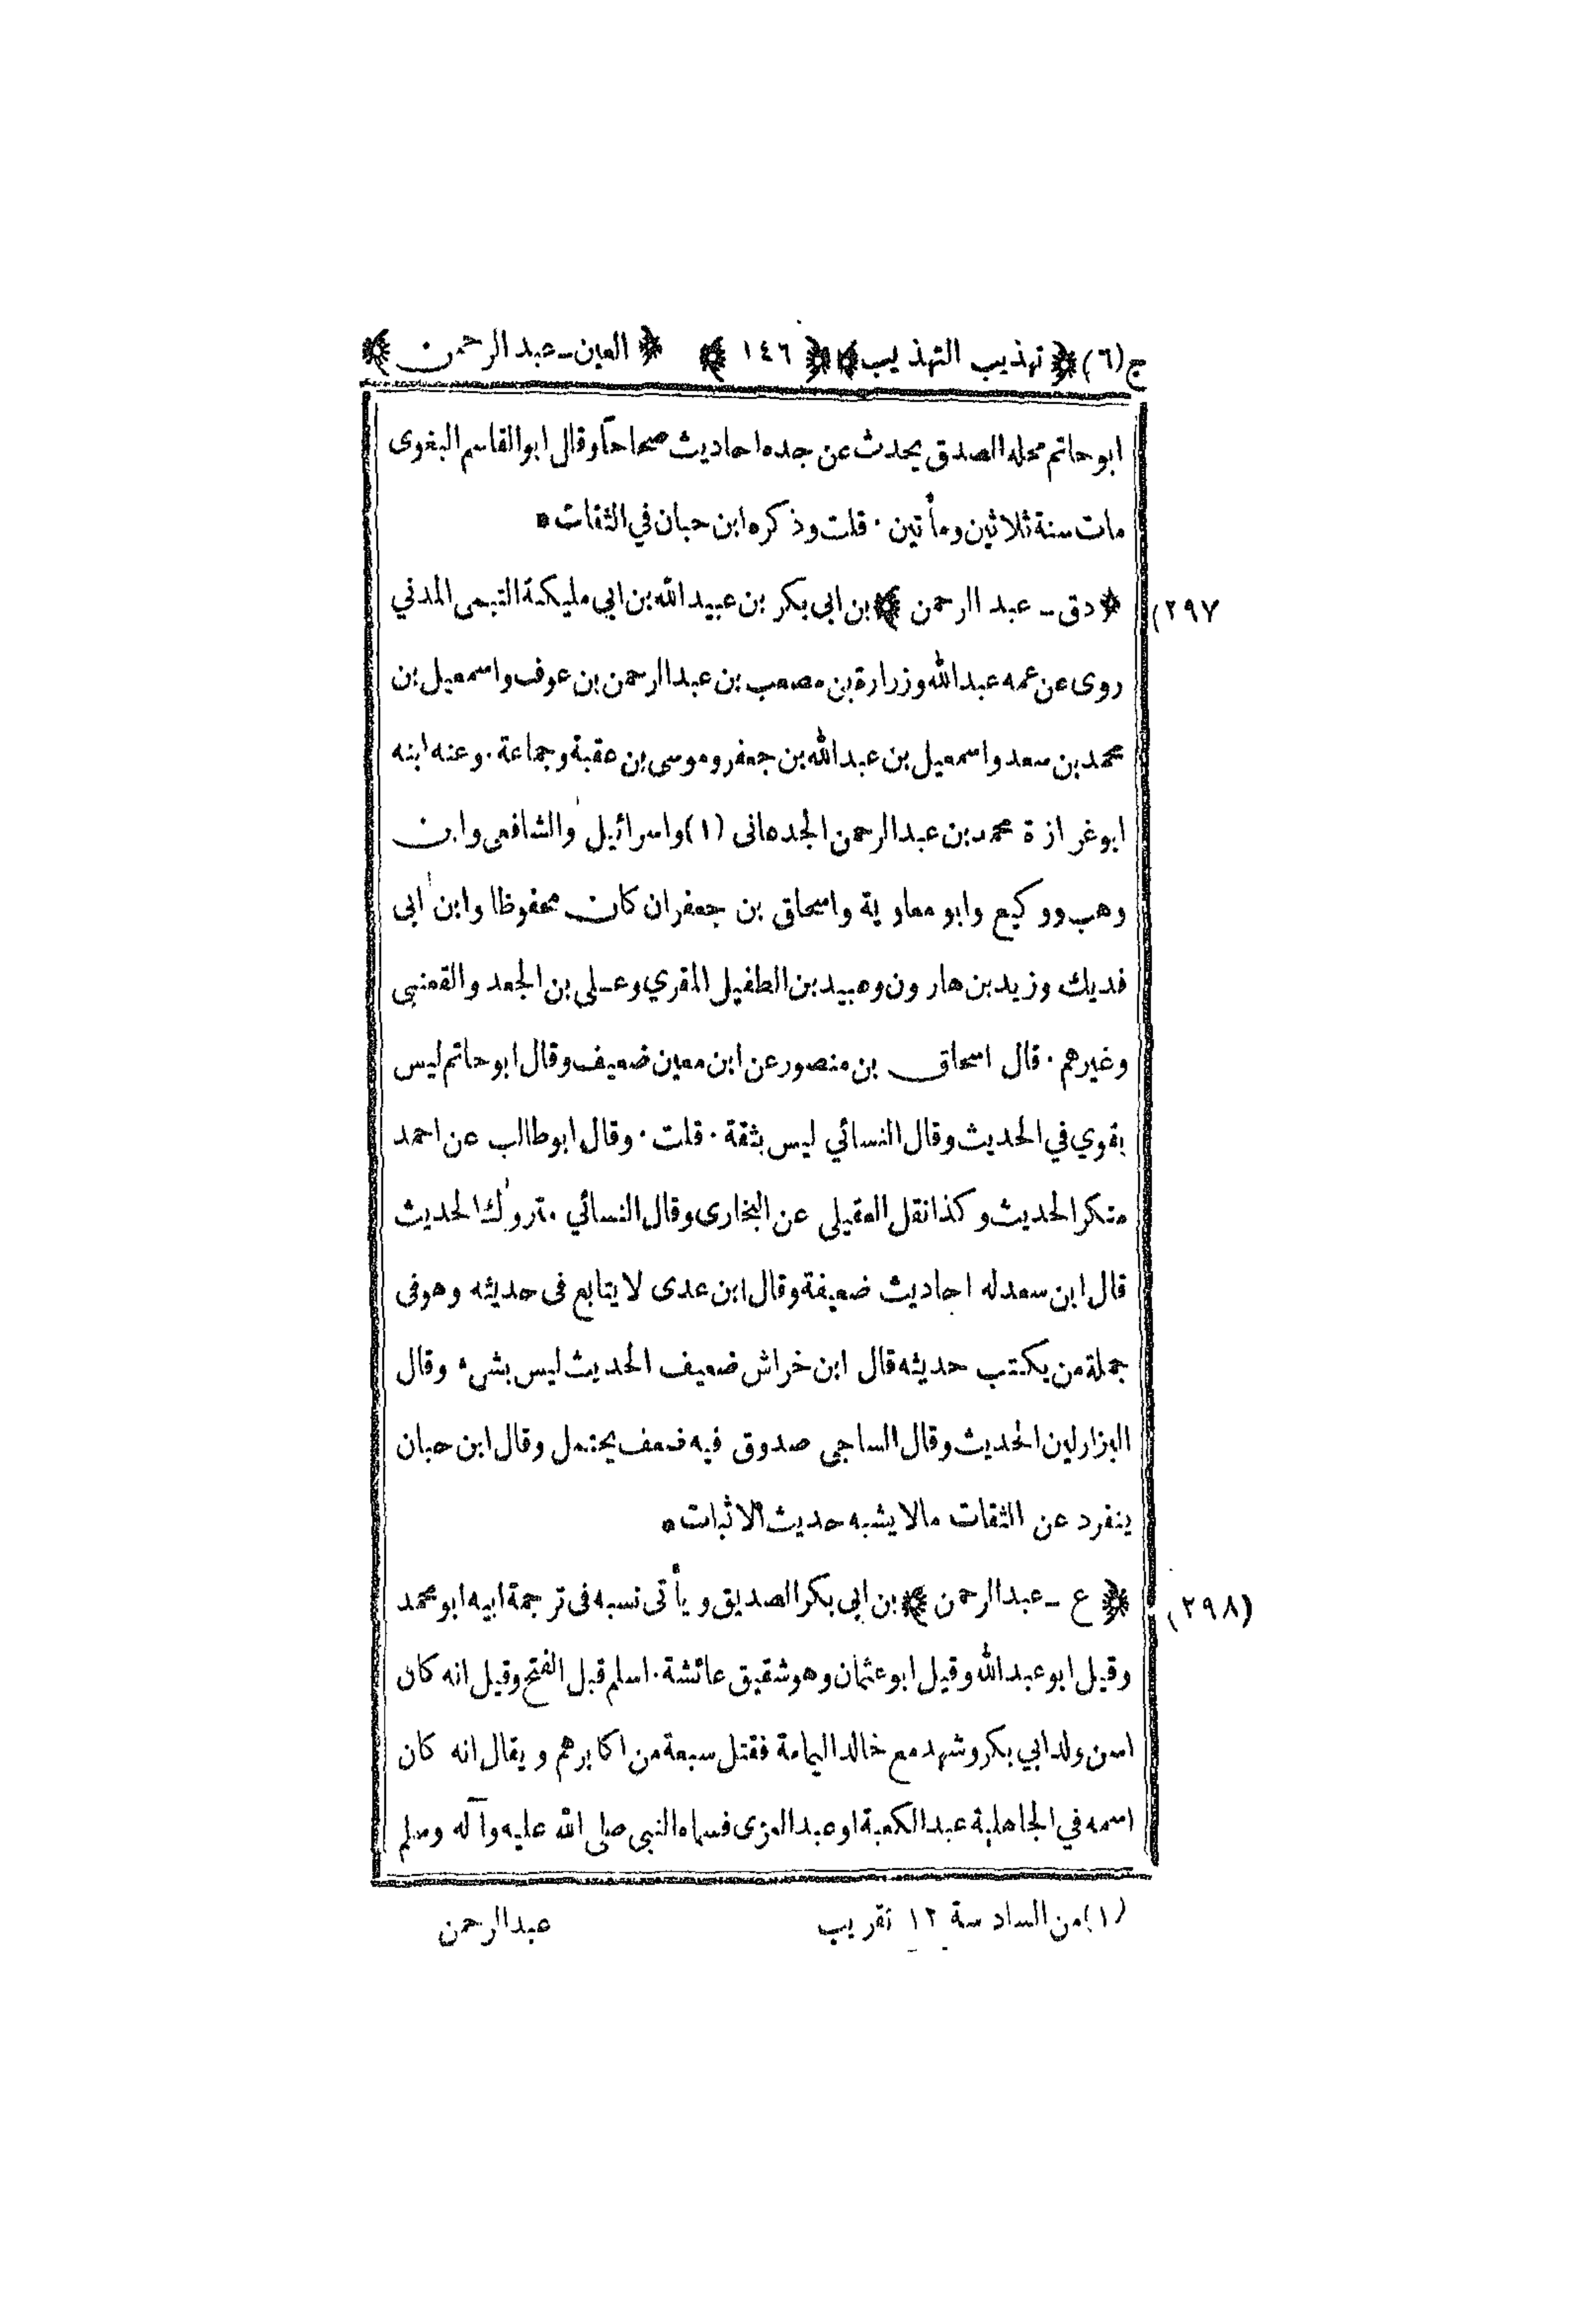 ج(٦) ﴿ تهذيب التهذيب ﴾ ﴿ ١٤٦ ﴾ ﴿ العين-عبد الرحمن ﴾
ابو حاتم محله الصدق يحدث عن جده احاديث صحاحا وقال ابو القاسم البغوى
مات سنة ثلاثين ومأتين . قلت وذكره ابن حبان في الثقات *
(٢٩٧ ﴿ دق - عبد الرحمن ﴾ بن ابى بكر بن عبيد الله بن ابي مليكة التيمى المدني
روى عن عمه عبد الله وزرارة بن مصعب بن عبد الرحمن بن عوف واسمعيل بن
محمد بن سعد واسمعيل بن عبد الله بن جعفر وموسى بن عقبة وجماعة . وعنه ابنه
ابو غرازة محمد بن عبد الرحمن الجدعانى (١) واسرائيل والشافعى وابن
وهب ووكيع وابو معاوية واسحاق بن جعفر ان كان محفوظا وابن ابى
فديك وزيد بن هارون وعبيد بن الطفيل المقري وعلى بن الجعد والقعنبى
وغيرهم . قال اسحاق بن منصور عن ابن معين ضعيف وقال ابو حاتم ليس
بقوي في الحديث وقال النسائي ليس بثقة . قلت . وقال ابو طالب عن احمد
منكر الحديث وكذا نقل العقيلى عن البخارى وقال النسائي متروك الحديث
قال ابن سعد له احاديث ضعيفة وقال ابن عدى لا يتابع فى حديثه وهو فى
جملة من يكتب حديثه قال ابن خراش ضعيف الحديث ليس بشىء وقال
البزار لين الحديث وقال الساجى صدوق فيه ضعف يحتمل وقال ابن حبان
ينفرد عن الثقات مالا يشبه حديث الاثبات *
(٢٩٨) ﴿ ع - عبد الرحمن ﴾ بن ابي بكر الصديق ويأتى نسبه فى ترجمة ابيه ابو محمد
وقيل ابو عبد الله وقيل ابو عثمان وهو شقيق عائشة . اسلم قبل الفتح وقيل انه كان
اسن ولد ابي بكر وشهد مع خالد اليمامة فقتل سبعة من اكابرهم ويقال انه كان
اسمه في الجاهلية عبد الكعبة او عبد العزى فسماه النبى صلى الله عليه وآله وسلم
(١) من السادسة ١٢ تقريب
عبد الرحمن